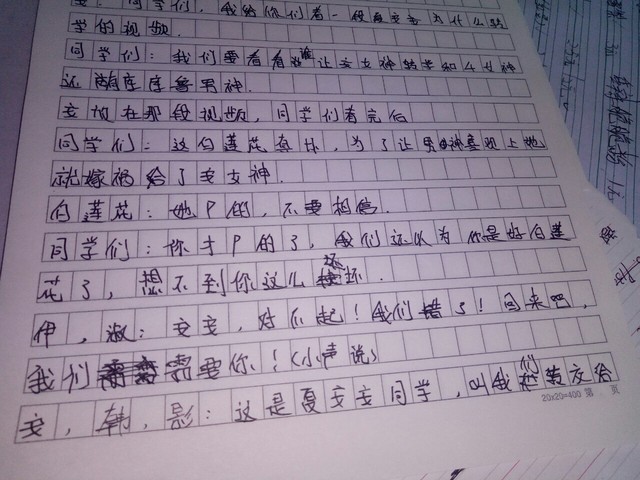 安：同学们，我给你们看一段夏安安为什么转
学的视频.
同学们：我们要看看谁让安女神转学和4女神
还有座座鲁男神.
安放在那段视频，同学们看完后
同学们：这白莲花真什，为了让男神喜欢上她
就嫁祸给了安女神.
白莲花：她P的，不要相信.
同学们：你才P的了，我们还以为你是好白莲
花了，想不到你这么坏.
伊，淑：安安，对不起！我们错了！回来吧，
我们需要你！（小声说）
安，韩，影：这是夏安安同学，叫我们转交给
20x20=400 第 页